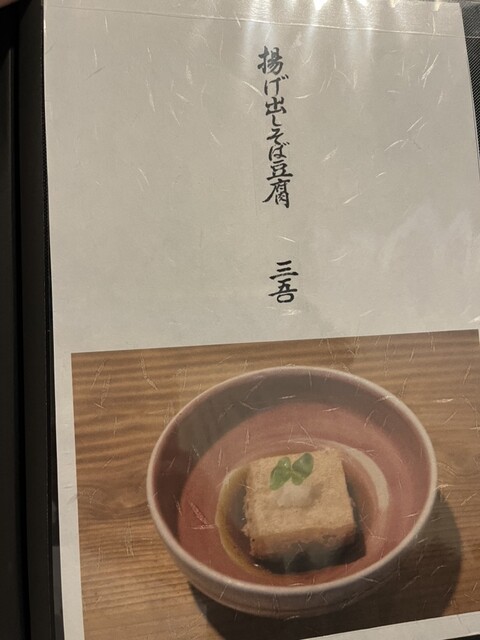 揚げ出しそば豆腐 三吾